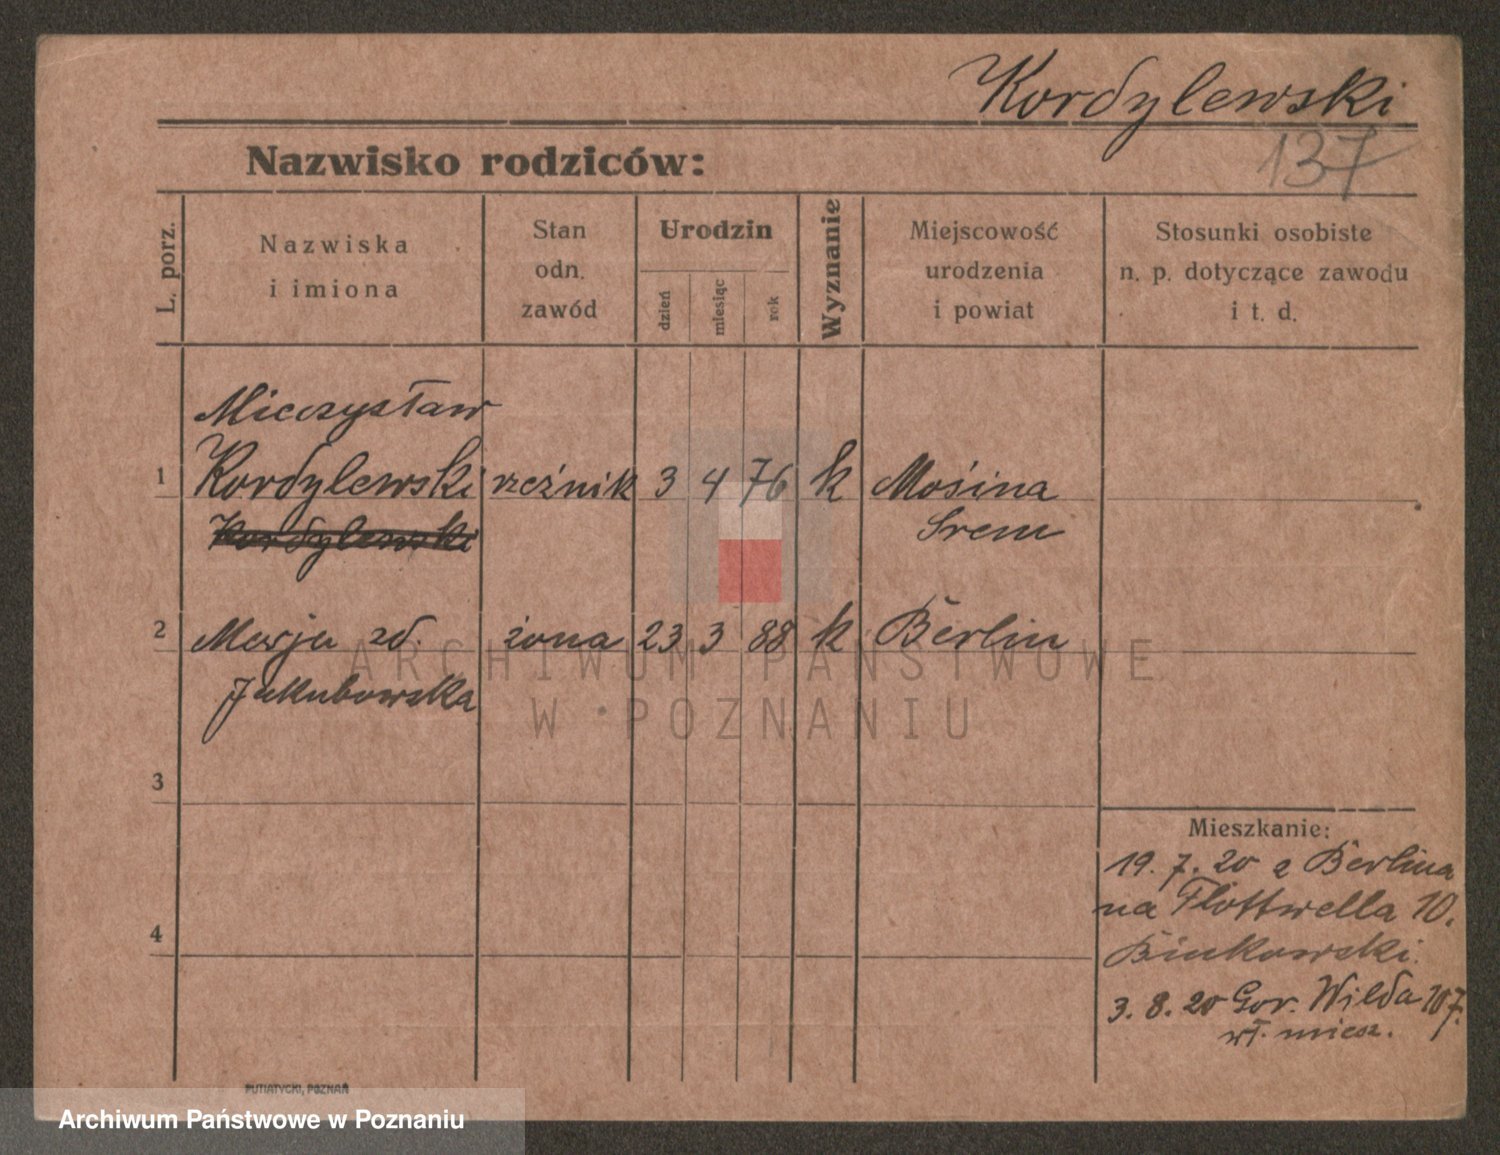 Kordylewski
137
Nazwisko rodziców:
L. porz.
Nazwiska
i imiona
Stan
odn.
zawód
Urodzin
dzień
miesiąc
rok
Wyznanie
Miejscowość
urodzenia
i powiat
Stosunki osobiste
n. p. dotyczące zawodu
i t. d.
Mieczysław
1 Kordylewski rzeźnik 3 4 76 k Mośina
Kordylewski Srem
2 Marja zd. żona 23 3 88 k Berlin
Jakubowska
ARCHIWUM PAŃSTWOWE
W POZNANIU
3
4
Mieszkanie:
19. 7. 20 z Berlina
na Flottwella 10.
Binkowski.
3. 8. 20 Gor. Wilda 107.
wł. miesz.
PUTIATYCKI, POZNAŃ
Archiwum Państwowe w Poznaniu